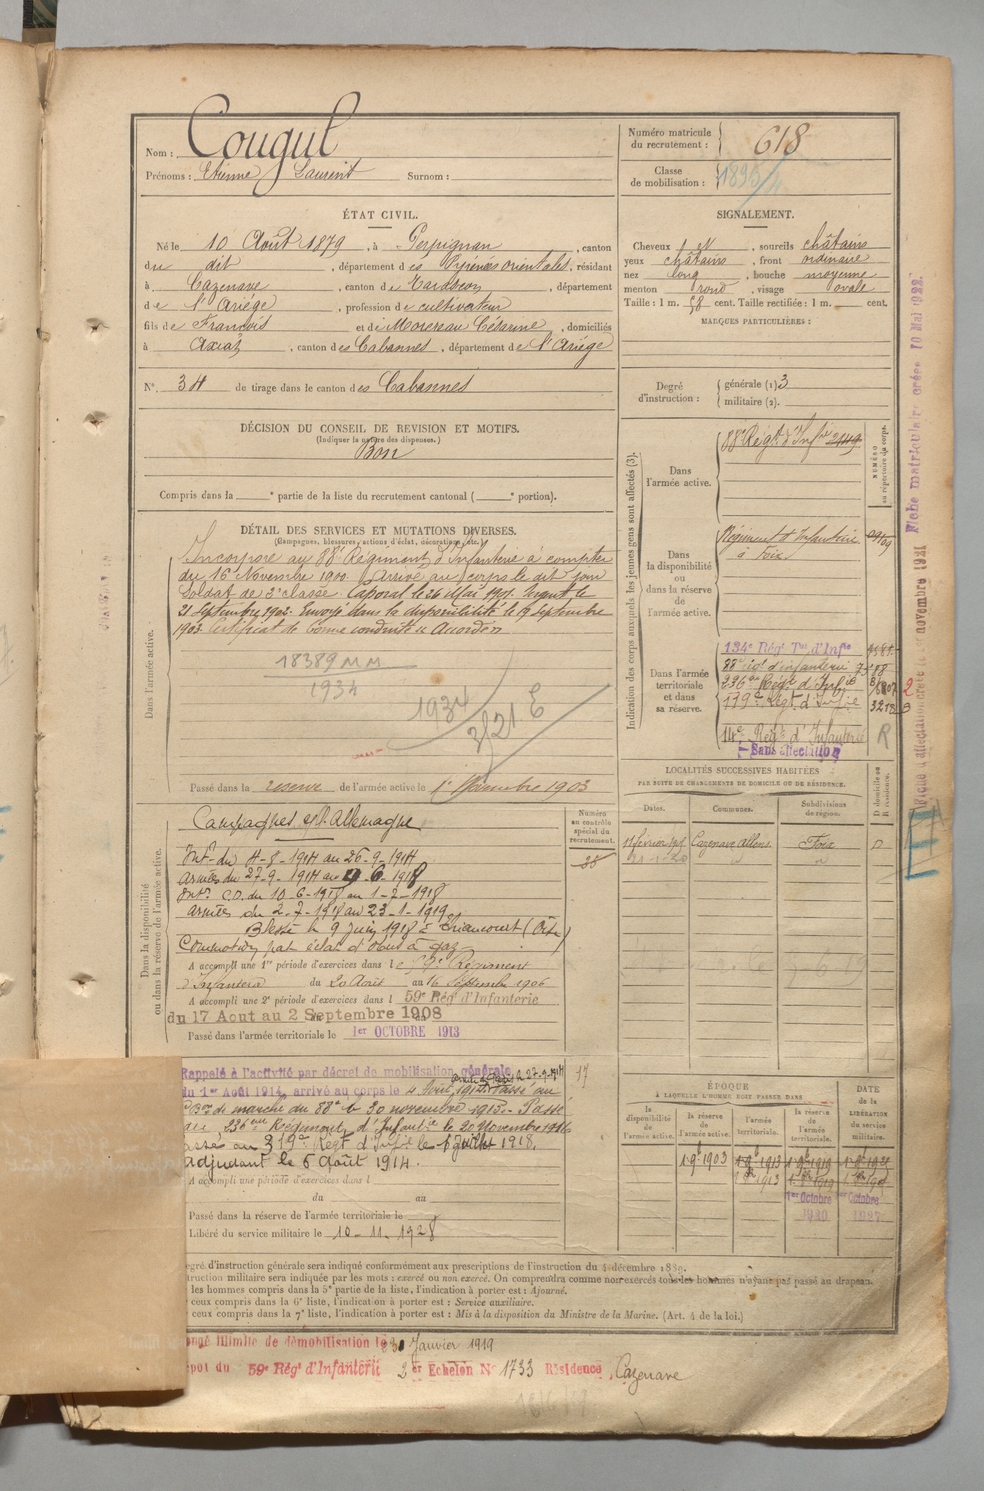 Nom : Cougul
Prénoms : Etienne Laurent Surnom :
Numéro matricule du recrutement : 618
Classe de mobilisation :
ÉTAT CIVIL.
Né le 10 Août 1879, à Perpignan, canton
du dit, département des Pyrénées orientales, résidant
à Cazenave, canton de Tarascon, département
de l'Ariège, profession de cultivateur
fils de François et de Morereau Césarine, domiciliés
à Axiat, canton des Cabannes, département de l'Ariège
N° 34 de tirage dans le canton des Cabannes
SIGNALEMENT.
Cheveux et, sourcils châtains
yeux châtains, front ordinaire
nez long, bouche moyenne
menton rond, visage ovale
Taille : 1 m. 58 cent. Taille rectifiée : 1 m. cent.
MARQUES PARTICULIÈRES :
Degré d'instruction : générale (1) 3
militaire (2).
DÉCISION DU CONSEIL DE REVISION ET MOTIFS.
(Indiquer la nature des dispenses.)
Bon
Compris dans la e partie de la liste du recrutement cantonal ( e portion).
DÉTAIL DES SERVICES ET MUTATIONS DIVERSES.
(Campagnes, blessures, actions d'éclat, décorations, etc.)
Dans l'armée active.
Incorporé au 88e Régiment d'Infanterie à compter
du 16 Novembre 1900. Arrivé au corps le dit jour
Soldat de 2e classe. Caporal le 26 Mai 1901. Sergent le
21 septembre 1902. Envoyé dans la disponibilité le 19 septembre
1903. Certificat de bonne conduite "Accordé"
18389 MM
1934
1934
3/21 E
Passé dans la réserve de l'armée active le 1er Novembre 1903
Indication des corps auxquels les jeunes gens sont affectés (3).
NUMÉRO au répertoire du corps.
Dans l'armée active.
88e Régt d'Infie
Dans la disponibilité ou dans la réserve de l'armée active.
Régiment d'Infanterie
à Foix
Dans l'armée territoriale et dans sa réserve.
134e Régt Tal d'Infie
88e régt d'infanterie
236e Régt d'Infie
319e Régt d'Infie
14e Régt d'Infanterie R
Sans affectation
Fiche matriculaire créée 10 Mai 1922.
LOCALITÉS SUCCESSIVES HABITÉES
PAR SUITE DE CHANGEMENTS DE DOMICILE OU DE RÉSIDENCE.
Dates. Communes. Subdivisions de région. D domicile ou R résidence.
Cazenave Allens Foix D
Dans la disponibilité ou dans la réserve de l'armée active.
Numéro au contrôle spécial du recrutement.
38
Campagnes c/ l'Allemagne
Int. du 4-8-1914 au 26-9-1914
Armées du 27-9-1914 au 9-6-1918
Intr. C.D. du 10-6-1918 au 1-7-1918
Armées du 2-7-1918 au 23-1-1919
Blessé le 9 Juin 1918 à Eliancourt (Oise)
Commotion par éclat d'obus à gaz
A accompli une 1re période d'exercices dans le 59e Régiment
d'Infanterie du 20 Août au 16 Septembre 1906
A accompli une 2e période d'exercices dans l 59e Régt d'Infanterie
du 17 Aout au 2 Septembre 1908
Passé dans l'armée territoriale le 1er OCTOBRE 1913
Rappelé à l'activité par décret de mobilisation générale
du 1er Août 1914, arrivé au corps le 4 Août 1914. Passé au
Bon de marche du 88e le 30 novembre 1915. Passé
au 236ème Régiment d'Infantie le 20 Novembre 1916
passé au 319e Régt d'Infie le 6 Juillet 1918.
adjudant le 6 Août 1914.
17
A accompli une période d'exercices dans l
du au
Passé dans la réserve de l'armée territoriale le
Libéré du service militaire le 10-11-1928
ÉPOQUE
À LAQUELLE L'HOMME DOIT PASSER DANS
DATE de la LIBÉRATION du service militaire.
la disponibilité de l'armée active. la réserve de l'armée active. l'armée territoriale. la réserve de l'armée territoriale.
1 9bre 1903
1er Octobre 1er Octobre
egré d'instruction générale sera indiqué conformément aux prescriptions de l'instruction du 4 décembre 1889.
truction militaire sera indiquée par les mots : exercé ou non exercé. On comprendra comme non exercés tous les hommes n'ayant pas passé au drapeau.
les hommes compris dans la 5e partie de la liste, l'indication à porter est : Ajourné.
ceux compris dans la 6e liste, l'indication à porter est : Service auxiliaire.
ceux compris dans la 7e liste, l'indication à porter est : Mis à la disposition du Ministre de la Marine. (Art. 4 de la loi.)
ongé illimité de démobilisation le 23 Janvier 1919
épôt du 59e Régt d'Infanterie 2er Échelon N° 1733 Résidence Cazenave